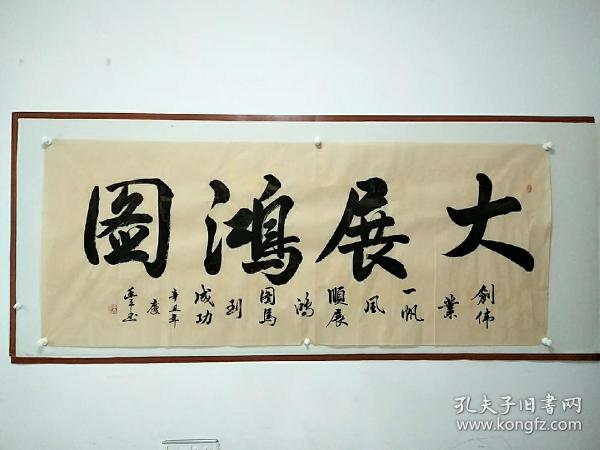 大展鴻圖
創伟
業
一帆
風
順展
鴻
圖馬
到
成功
辛丑年
慶
孔夫子旧書网
www.kongfz.com